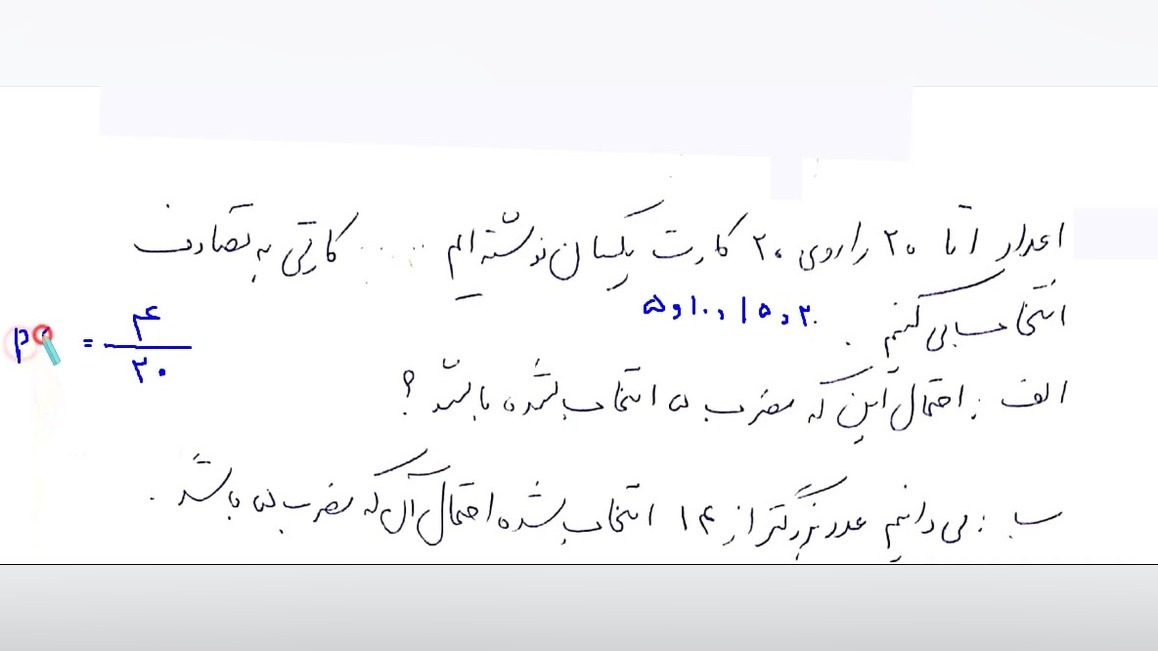 اعداد ۱ تا ۲۰ را روی ۲۰ کارت یکسان نوشته ایم .... کارتی به تصادف
انتخاب می کنیم .
۵ و ۱۰ و ۱۵ و ۲۰
= ۴/۲۰
الف : احتمال این که مضرب ۵ انتخاب شده باشد ؟
ب : می دانیم عدد بزرگتر از ۱۴ انتخاب شده احتمال آن که مضرب ۵ باشد .